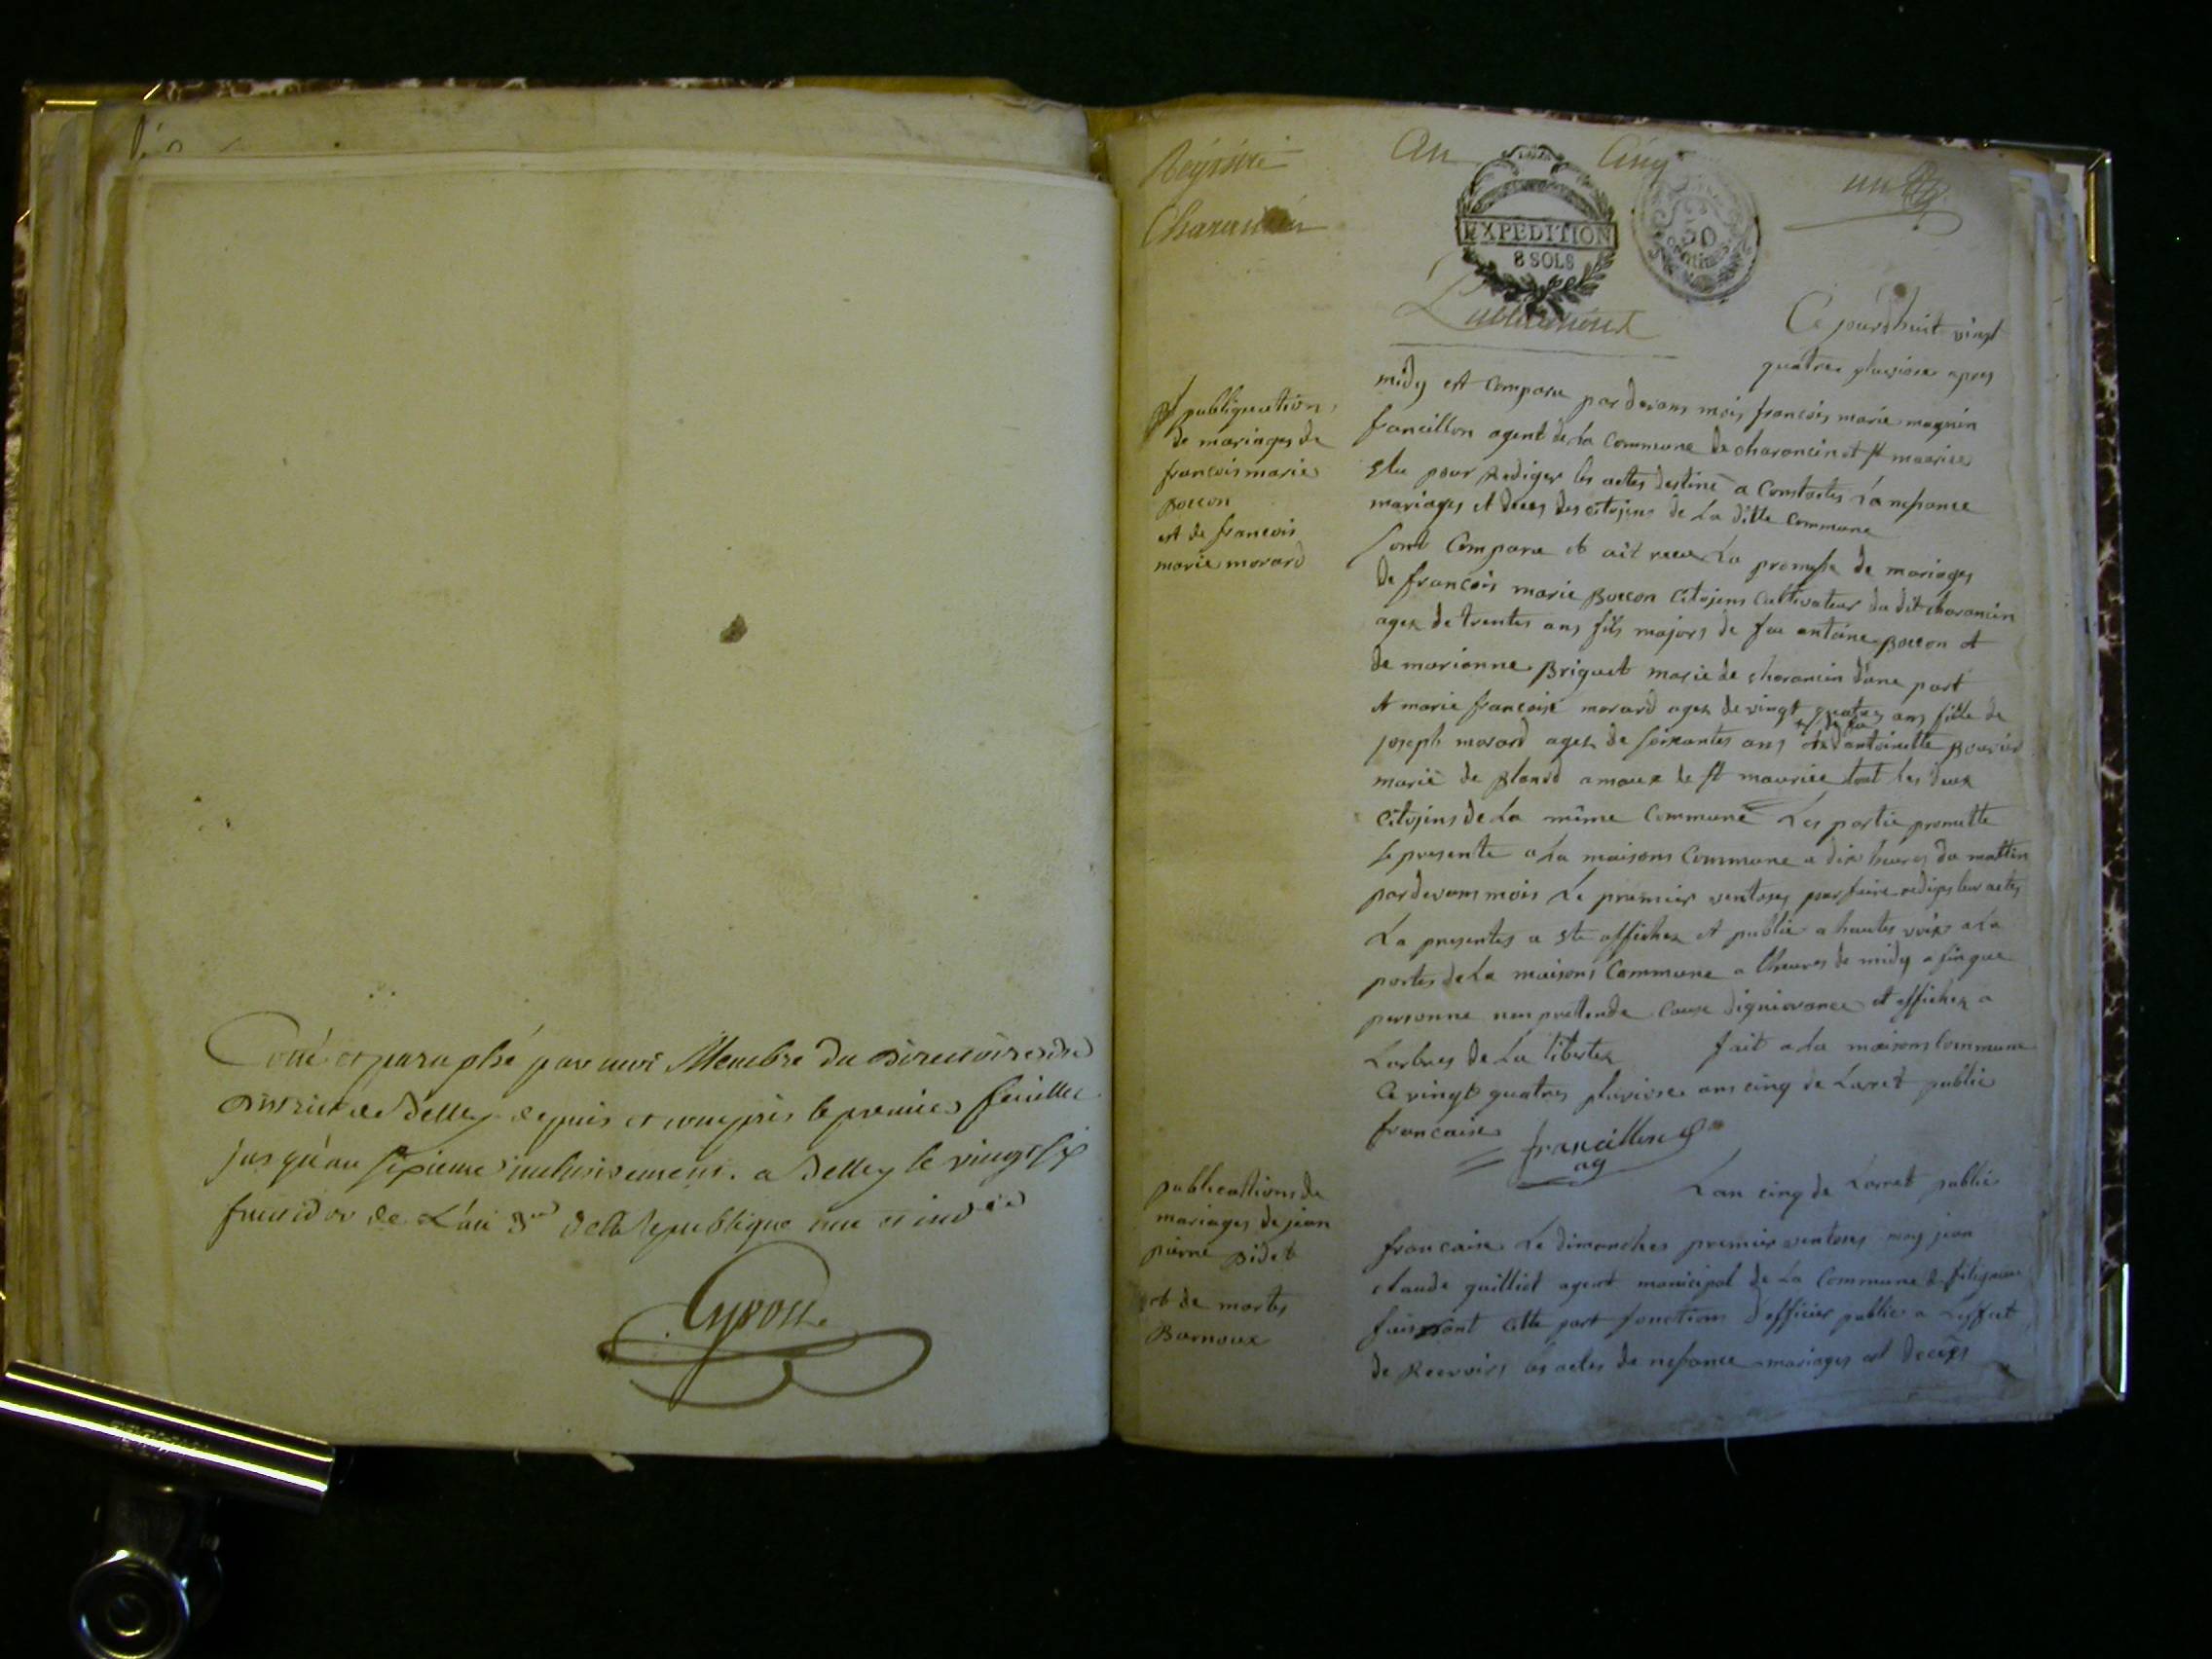 Cotté et paraphé par moi Membre du Directoire du
District de Belley depuis et compris le premier feuillet
jusqu'au sixieme inclusivement. a Belley le vingt six
fructidor de L'an 3me de la Republique une et indble
An Cinq
Charancin
EXPEDITION
8 SOLS
50
centimes
Ce jourdhuit vingt
quatres pluviose apres
publiquations
de mariages de
francois marie
Boccon
est de francois
marie morard
midy est Compara par devans mois francois marie magnin
francillon agent de La Commune de charancin et st maurice
elu pour Rediger les actes destiné a Constactes La nessance
mariages et deces des citojens de La ditte Commune
sont Compara et ait recu La promesse de mariages
de francois marie Boccon Citojens Cultivateur du dit charancin
agez de trentes ans fils majors de feu antoine Boccon et
de marianne Briguet marié de charancin dune part
et marie francoise morard agez de vingt quatres ans fille de
joseph morard agez de soixantes ans et de antoinette Bouvier
marié de amaux de st maurice tout les deux
Citojens de La même Commune Les partie promette
se presente a La maisons Commune a dix heures du mattin
par devans mois Le premier ventoses pour faire rediges leur actes
La presentes a ete affichez et publié a hautes voix a La
portes de La maisons Commune a lheures de midy a fin que
personne nen pretende Cause digniorance et affichez a
Larbres de La libertez fait a La maisons Commune
Ce vingt quatres pluviose ans cinq de Laret public
francaise
francillon
ag
publications de
mariages de jean
pierre Bidet
et de martes
Barnoux
Lan cinq de Larret public
francaise Le dimanches premier ventoses moy jean
claude guilliot agent municipal de La Commune de
faissant cette part fonctions d officier public a Leffect
de Recevoirs les actes de nessance mariages et decêss